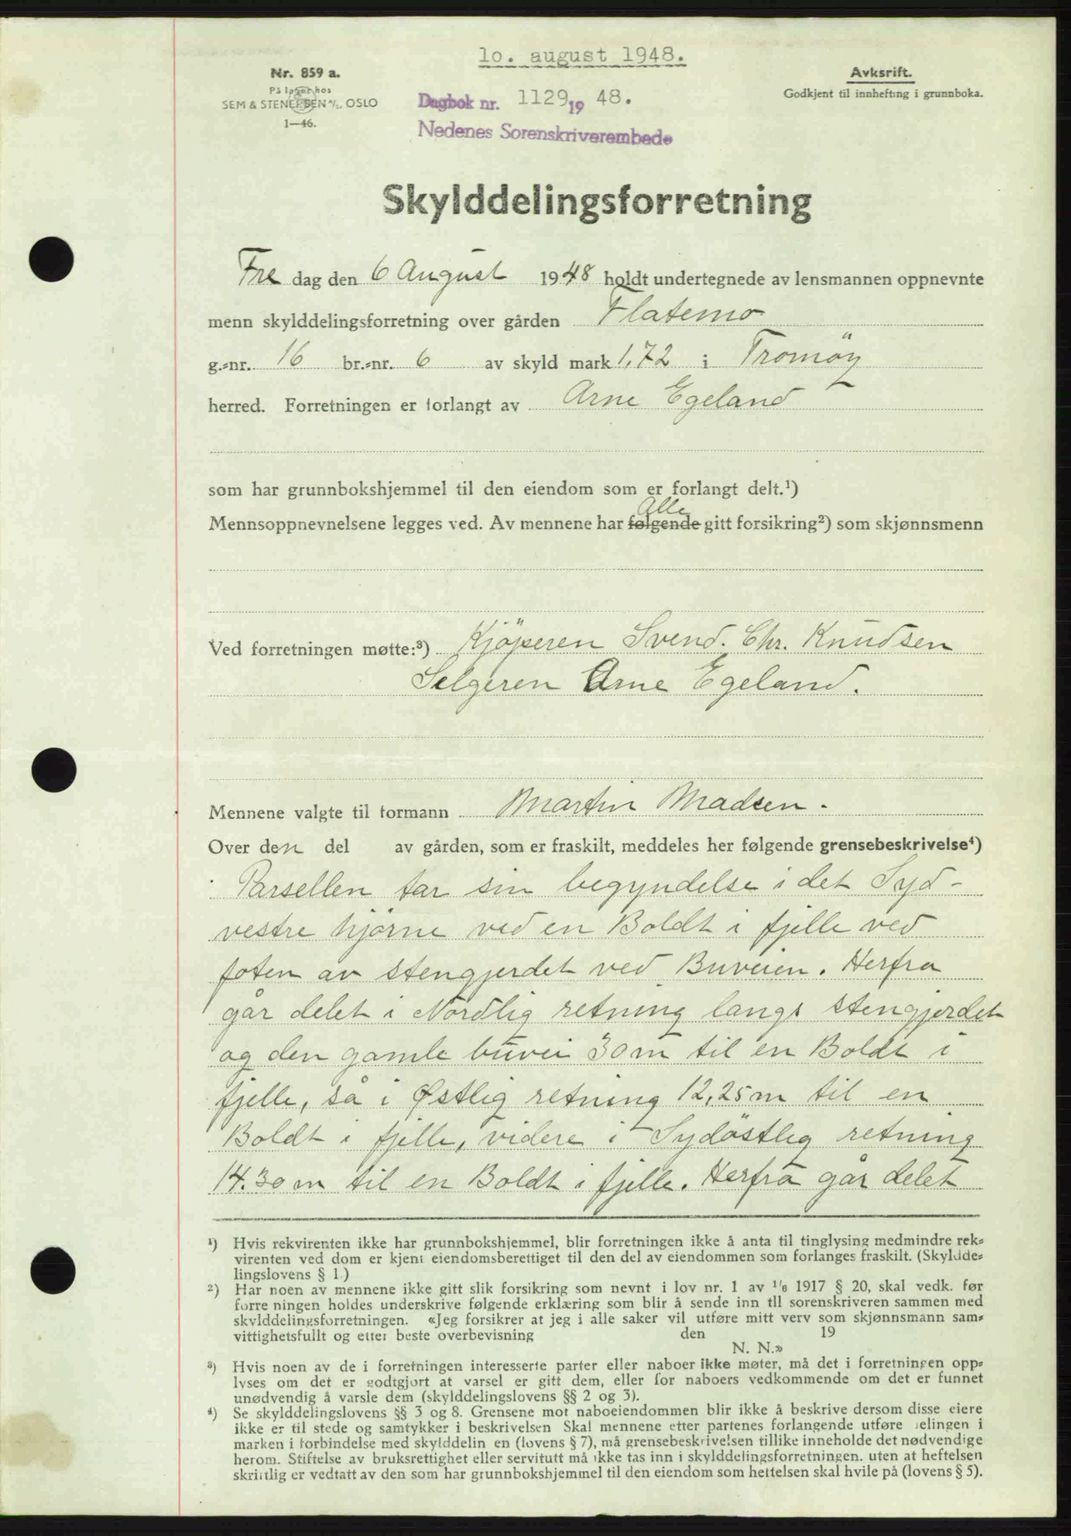 10. august 1948.
Nr. 859 a.
På lager hos
SEM & STENERSEN A/S. OSLO
1—46.
Dagbok nr. 1129 19 48.
Nedenes Sorenskriverembede
Avksrift.
Godkjent til innhefting i grunnboka.
Skylddelingsforretning
Fre dag den 6 August 1948 holdt undertegnede av lensmannen oppnevnte
menn skylddelingsforretning over gården Flatemo
g.-nr. 16 br.-nr. 6 av skyld mark 1,72 i Tromöy
herred. Forretningen er forlangt av Arne Egeland
som har grunnbokshjemmel til den eiendom som er forlangt delt.¹)
Alle
Mennsoppnevnelsene legges ved. Av mennene har følgende gitt forsikring²) som skjønnsmenn
Ved forretningen møtte:³) Kjöperen Svend. Chr. Knudsen
Selgeren Arne Egeland.
Mennene valgte til formann Martin Madsen.
Over den del av gården, som er fraskilt, meddeles her følgende grensebeskrivelse⁴)
Parsellen tar sin begyndelse i det Syd-
vestre hjørne ved en Boldt i fjelle ved
foten av stengjerdet ved Buveien. Herfra
går delet i Nordlig retning langs stengjerdet
og den gamle buvei 30 m til en Boldt i
fjelle, så i Østlig retning 12,25 m til en
Boldt i fjelle, videre i Sydöstlig retning
14.30 m til en Boldt i fjelle. Herfra går delet
¹) Hvis rekvirenten ikke har grunnbokshjemmel, blir forretningen ikke å anta til tinglysing medmindre rek-
virenten ved dom er kjent eiendomsberettiget til den del av eiendommen som forlanges fraskilt. (Skyldde-
lingslovens § 1.)
²) Har noen av mennene ikke gitt slik forsikring som nevnt i lov nr. 1 av ¹/6 1917 § 20, skal vedk. før
forretningen holdes underskrive følgende erklæring som blir å sende inn til sorenskriveren sammen med
skylddelingsforretningen. «Jeg forsikrer at jeg i alle saker vil utføre mitt verv som skjønnsmann sam-
vittighetsfullt og etter beste overbevisning den 19
N. N.»
³) Hvis noen av de i forretningen interesserte parter eller naboer ikke møter, må det i forretningen opp-
lyses om det er godtgjort at varsel er gitt dem, eller for naboers vedkommende om det er funnet
unødvendig å varsle dem (skylddelingslovens §§ 2 og 3).
⁴) Se skylddelingslovens §§ 3 og 8. Grensene mot naboeiendommen blir ikke å beskrive dersom disse eiere
ikke er til stede og samtykker i beskrivelsen Skal mennene etter partenes forlangende utføre delingen i
marken i forbindelse med skylddelingen (lovens § 7), må grensebeskrivelsen tillike inneholde det nødvendige
herom. Stiftelse av bruksrettighet eller servitutt må ikke tas inn i skylddelingsforretningen. uten at heftelsen
skriftlig er vedtatt av den som har grunnbokshjemmel til den eiendom som heftelsen skal hvile på (lovens § 5).